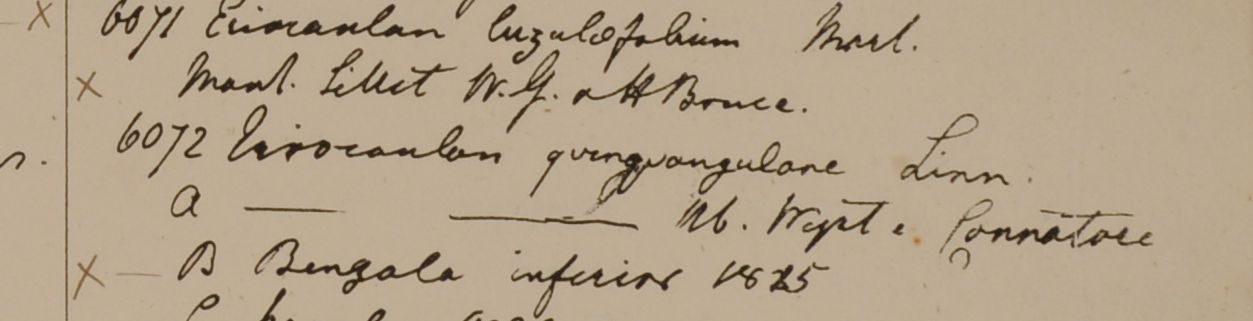 6071 Eriocaulon luzulæfolium Mart.
Mont. Sillet W.G. & H Bruce.
6072 Eriocaulon quinquangulare Linn.
A — — Hb. Wight e
B Bengala inferior 1825